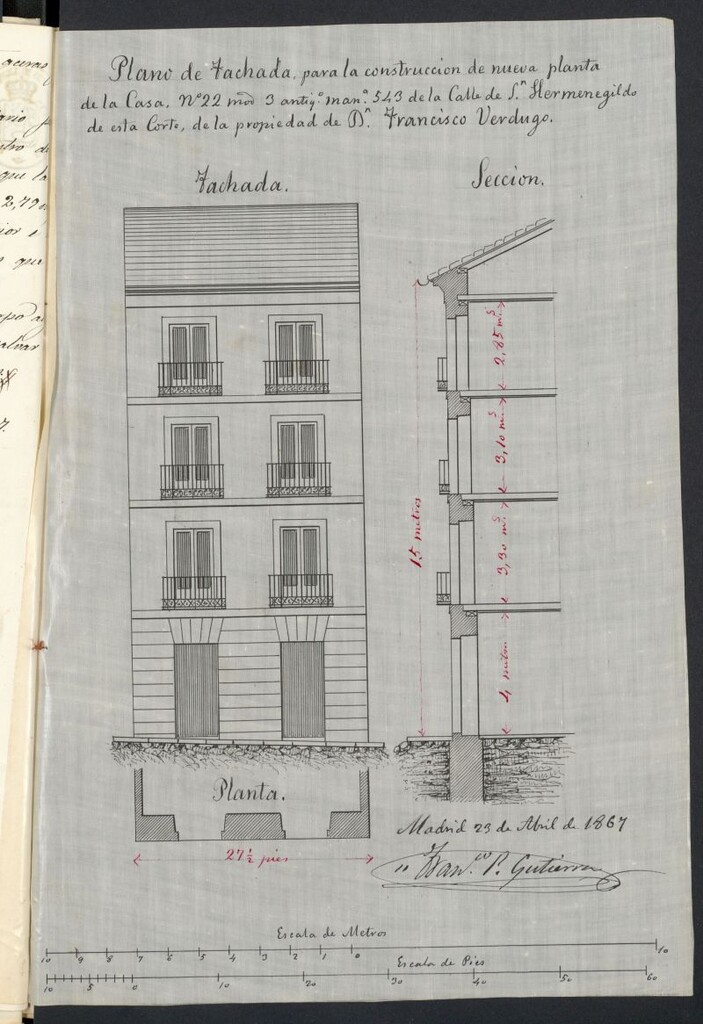 Plano de Fachada, para la construccion de nueva planta
de la Casa, Nº 22 modº 3 antigº manª 543 de la Calle de Sn Hermenegildo
de esta Corte, de la propiedad de Dn Francisco Verdugo.
Fachada.
Seccion.
2,85 ms
3,10 ms
15 metros
3,30 ms
4 metros
Planta.
27 1/2 pies
Madrid 23 de Abril de 1867
P. Gutierrez
Escala de Metros
10 9 8 7 6 5 4 3 2 1 0 10
Escala de Pies
10 5 0 10 20 30 40 50 60